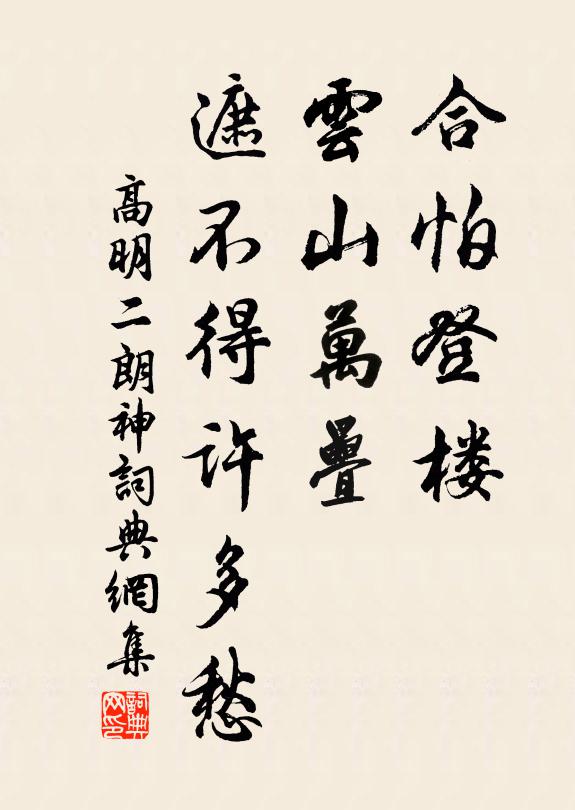 合怕登楼
雲山萬疊
遮不得許多愁
高明二朗神詞典網集
詞典网印